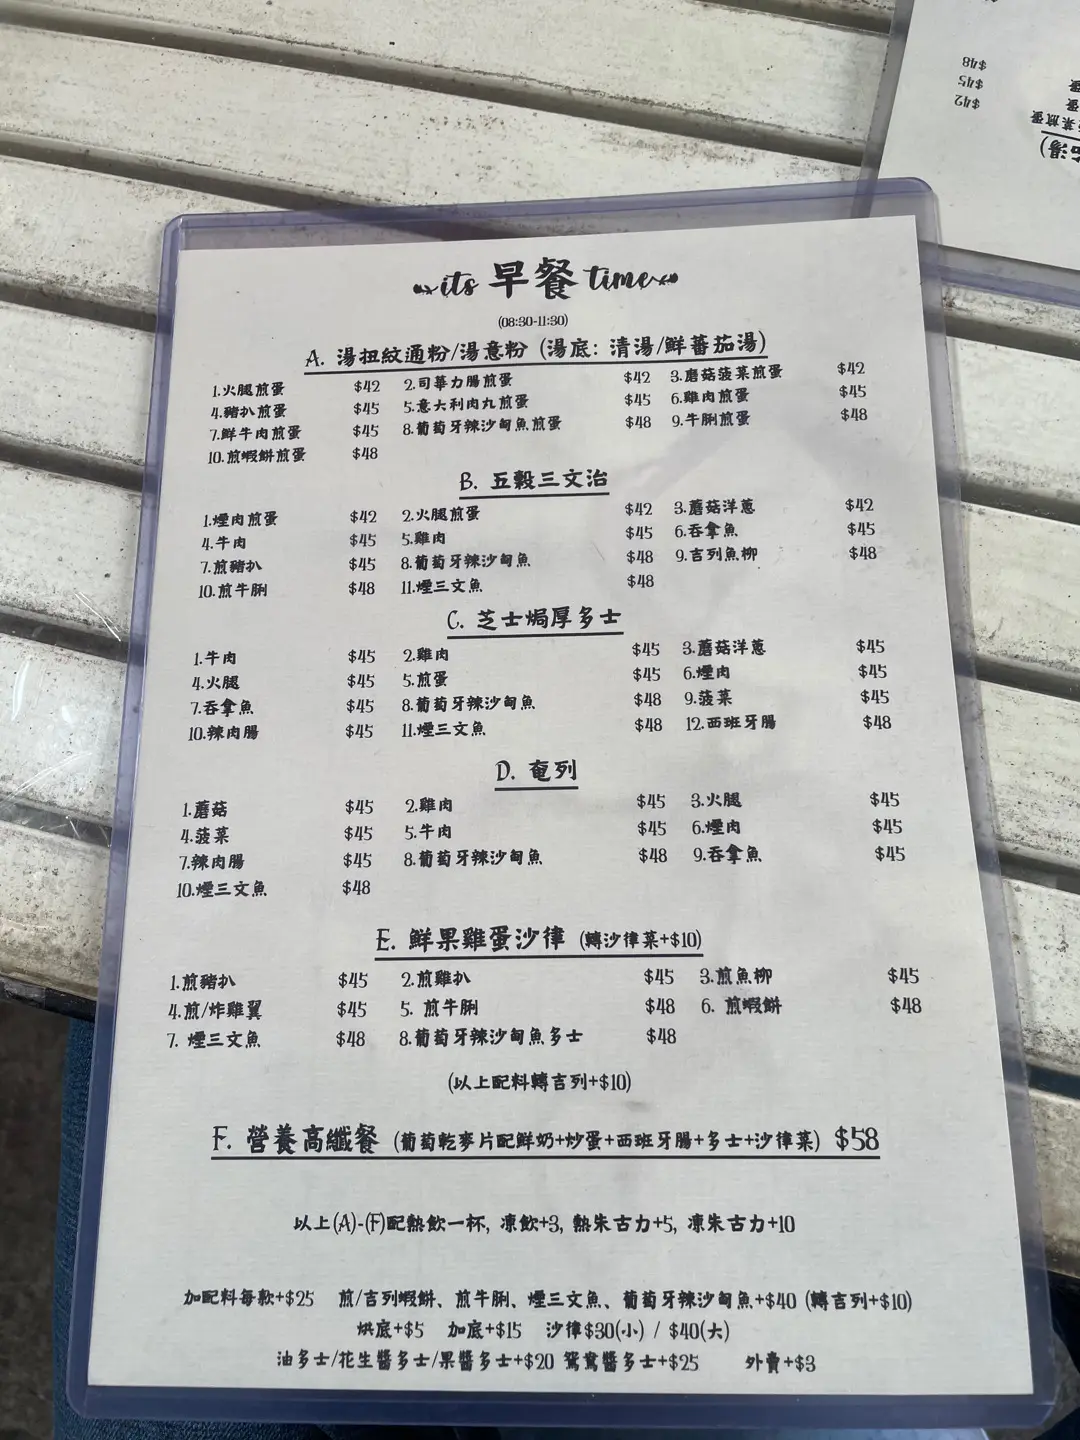 its 早餐 time
(08:30-11:30)
A. 湯扭紋通粉/湯意粉 (湯底: 清湯/鮮蕃茄湯)
1.火腿煎蛋 $42 2.司華力腸煎蛋 $42 3.蘑菇菠菜煎蛋 $42
4.豬扒煎蛋 $45 5.意大利肉丸煎蛋 $45 6.雞肉煎蛋 $45
7.鮮牛肉煎蛋 $45 8.葡萄牙辣沙甸魚煎蛋 $48 9.牛脷煎蛋 $48
10.煎蝦餅煎蛋 $48
B. 五穀三文治
1.煙肉煎蛋 $42 2.火腿煎蛋 $42 3.蘑菇洋蔥 $42
4.牛肉 $45 5.雞肉 $45 6.吞拿魚 $45
7.煎豬扒 $45 8.葡萄牙辣沙甸魚 $48 9.吉列魚柳 $48
10.煎牛脷 $48 11.煙三文魚 $48
C. 芝士焗厚多士
1.牛肉 $45 2.雞肉 $45 3.蘑菇洋蔥 $45
4.火腿 $45 5.煎蛋 $45 6.煙肉 $45
7.吞拿魚 $45 8.葡萄牙辣沙甸魚 $48 9.菠菜 $45
10.辣肉腸 $45 11.煙三文魚 $48 12.西班牙腸 $48
D. 奄列
1.蘑菇 $45 2.雞肉 $45 3.火腿 $45
4.菠菜 $45 5.牛肉 $45 6.煙肉 $45
7.辣肉腸 $45 8.葡萄牙辣沙甸魚 $48 9.吞拿魚 $45
10.煙三文魚 $48
E. 鮮果雞蛋沙律 (轉沙律菜+$10)
1.煎豬扒 $45 2.煎雞扒 $45 3.煎魚柳 $45
4.煎/炸雞翼 $45 5. 煎牛脷 $48 6. 煎蝦餅 $48
7. 煙三文魚 $48 8.葡萄牙辣沙甸魚多士 $48
(以上配料轉吉列+$10)
F. 營養高纖餐 (葡萄乾麥片配鮮奶+炒蛋+西班牙腸+多士+沙律菜) $58
以上(A)-(F)配熱飲一杯, 凍飲+3, 熱朱古力+5, 凍朱古力+10
加配料每款+$25 煎/吉列蝦餅、煎牛脷、煙三文魚、葡萄牙辣沙甸魚+$40 (轉吉列+$10)
烘底+$5 加底+$15 沙律$30(小) / $40(大)
油多士/花生醬多士/果醬多士+$20 鴛鴦醬多士+$25 外賣+$3
$48
$45
$42
菜煎蛋